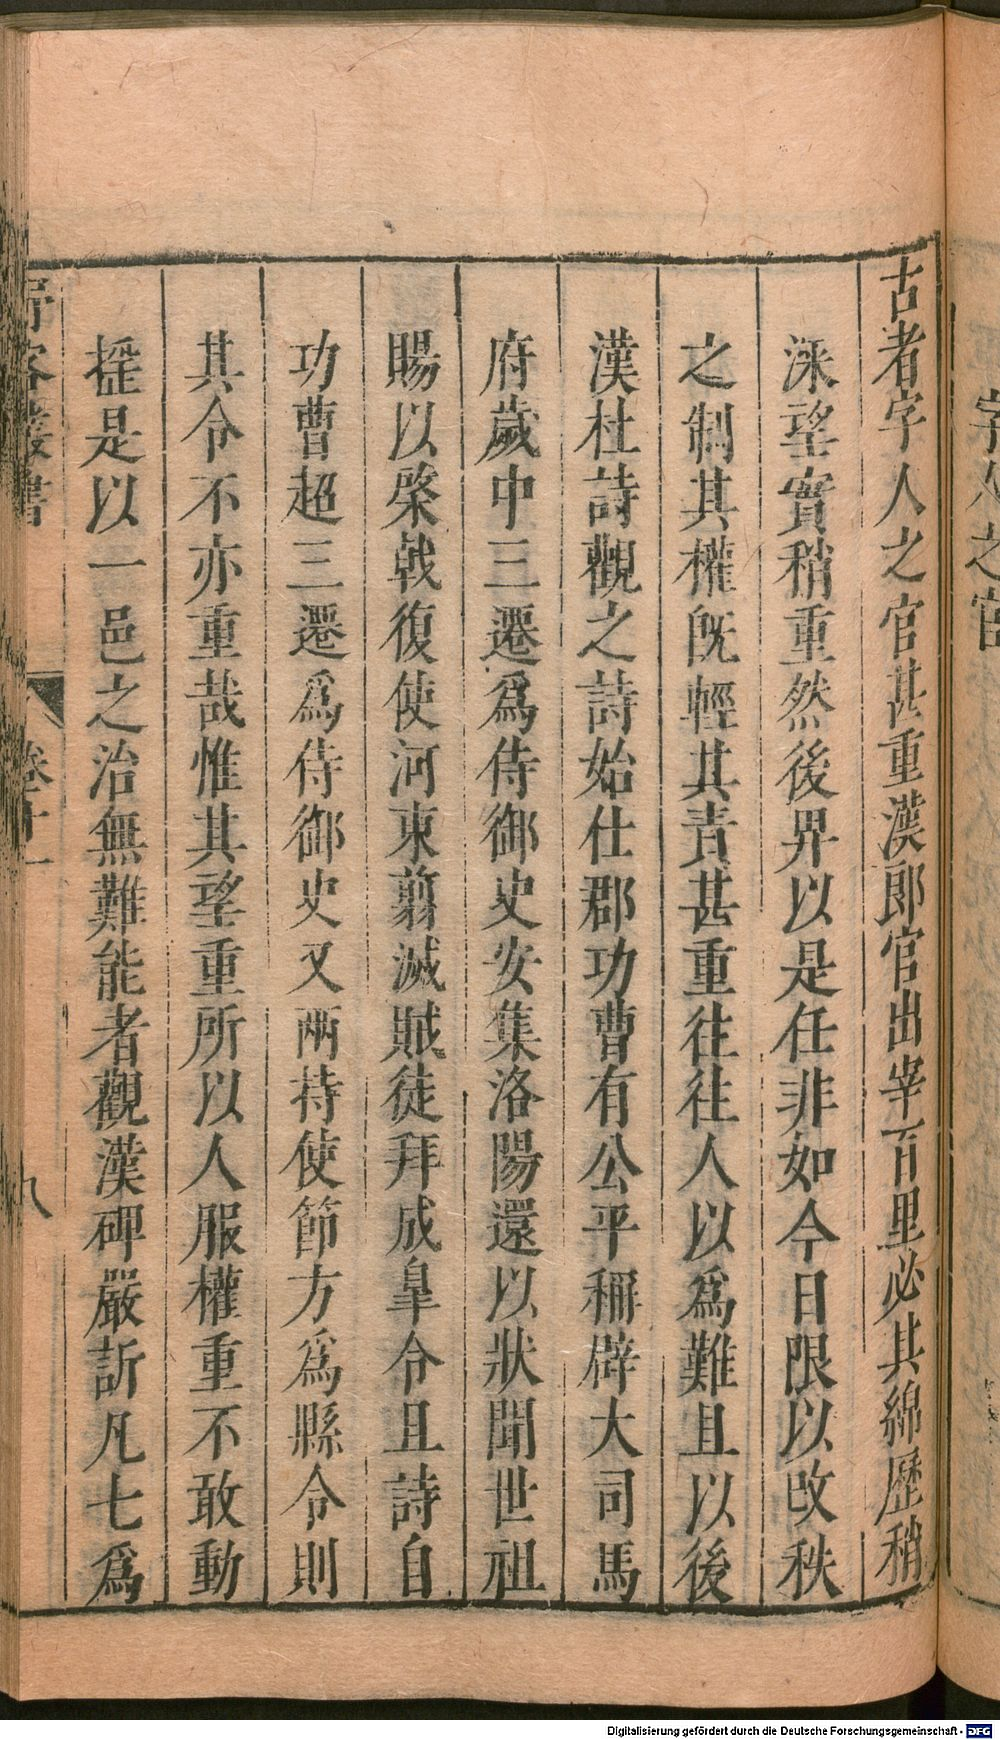 字人之官
古者字人之官甚重漢郎官出宰百里必其綿歷稍
深望實稍重然後畀以是任非如今日限以改秩
之制其權旣輕其責甚重往往人以爲難且以後
漢杜詩觀之詩始仕郡功曹有公平稱辟大司馬
府歲中三遷爲侍御史安集洛陽還以狀聞世祖
賜以棨戟復使河東翦滅賊徒拜成皐令且詩自
功曹超三遷爲侍御史又兩持使節方爲縣令則
其令不亦重哉惟其望重所以人服權重不敢動
搖是以一邑之治無難能者觀漢碑嚴訢凡七爲
野客叢書 卷十一 九
Digitalisierung gefördert durch die Deutsche Forschungsgemeinschaft - DFG